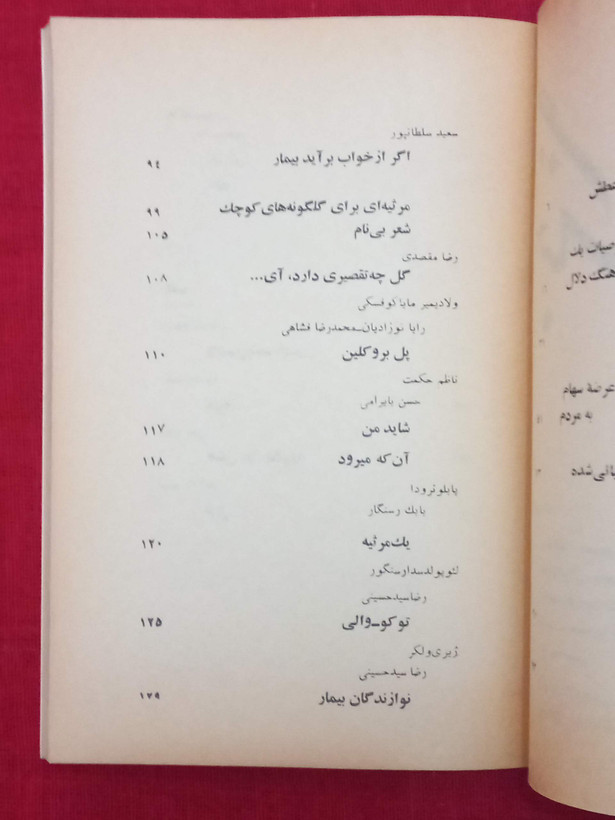 سعید سلطانپور
اگر از خواب برآید بیمار ۹۴
مرثیه‌ای برای گلگونه‌های کوچك ۹۹
شعر بی‌نام ۱۰۵
رضا مقصدی
گل چه‌تقصیری دارد، آی... ۱۰۸
ولادیمیر مایاکوفسکی
رایا نوزادیان-محمدرضا فشاهی
پل بروکلین ۱۱۰
ناظم حکمت
حسن بایرامی
شاید من ۱۱۷
آن که میرود ۱۱۸
پابلونرودا
بابك رستگار
يك مرثیه ۱۲۰
لئوپولدسدارسنگور
رضاسیدحسینی
توکو-والی ۱۲۵
ژیری‌ولکر
رضا سیدحسینی
نوازندگان بیمار ۱۷۹
يك
دلال
عرضهٔ سهام
به مردم